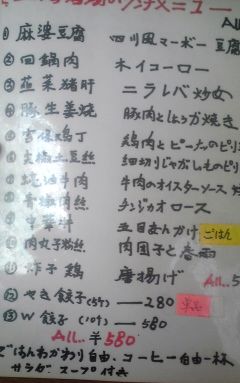 ① 麻婆豆腐 四川風マーボー豆腐
② 回鍋肉 ホイコーロー
③ 韮菜猪肝 ニラレバ炒め
④ 豚生姜焼 豚肉としょうが焼き
宮保鶏丁 鶏肉とピーナッツのピリ
土豆絲 細切りじゃがいものピリ
蠔油牛肉 牛肉のオイスターソース
青椒肉絲 チンジャオロース
中華丼 五目あんかけ ごはん
肉丸子粉絲 肉団子と春雨
炸子鶏 唐揚げ All
⑫ やき餃子(5ケ) — 280 単品
⑬ W餃子(10ケ) — 580
All.. ¥580
ごはんおかわり自由、コーヒー自由一杯
サラダ スープ付き